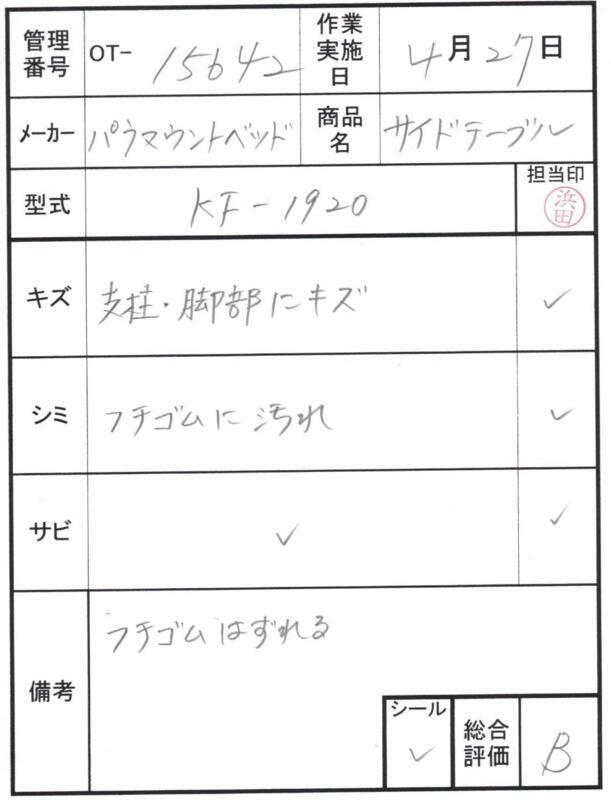 管理番号 OT- 15642 作業実施日 4月27日
メーカー パラマウントベッド 商品名 サイドテーブル
型式 KF-1920 担当印 浜田
キズ 支柱・脚部にキズ ✓
シミ フチゴムに汚れ ✓
サビ ✓ ✓
備考 フチゴムはずれる
シール ✓ 総合評価 B